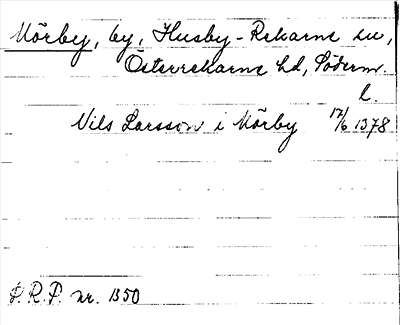 Mörby, by, Husby-Rekarne sn,
Österrekarne hd, Söderm.
l.
Nils Larsson i Mörby 17/6 1378
P.R.P. nr. 1350